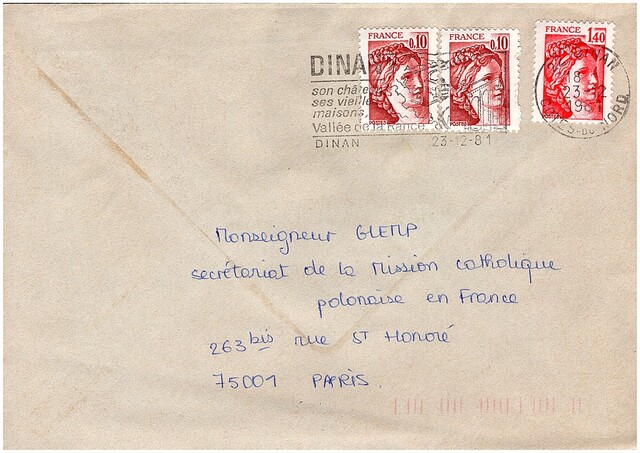 FRANCE 0.10
FRANCE 0.10
FRANCE 1.40
POSTES
DINAN
son
ses
maisons
Vallée de la Rance
DINAN 23-12-81
18
23
DU NORD
Monseigneur GLEMP
secrétariat de la Mission catholique
polonaise en France
263 bis rue St Honoré
75001 PARIS.